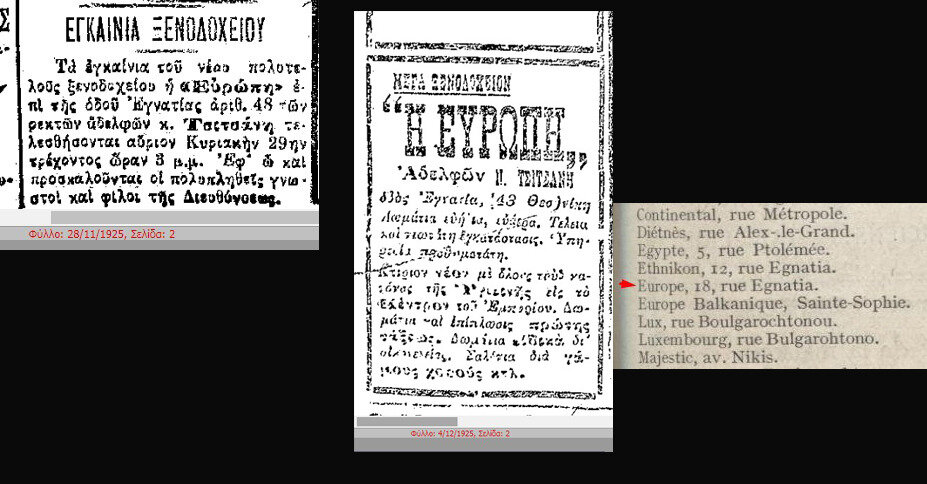 ΕΓΚΑΙΝΙΑ ΞΕΝΟΔΟΧΕΙΟΥ
Τὰ ἐγκαίνια τοῦ νέου πολυτε
λοῦς ξενοδοχείου ἡ «Εὐρώπη» ἐ-
πὶ τῆς ὁδοῦ Ἐγνατίας ἀριθ. 48 τῶν
ἀδελφῶν κ. Τσιτσάνη τε-
λεσθήσονται αὔριον Κυριακὴν 29ην
τρέχοντος ὥραν 3 μ.μ. Ἐφ' ᾧ καὶ
προσκαλοῦνται οἱ πολυπληθεῖς γνω
στοὶ καὶ φίλοι τῆς Διευθύνσεως.
Φύλλο: 28/11/1925, Σελίδα: 2
ΜΕΓΑ ΞΕΝΟΔΟΧΕΙΟΝ
“Η ΕΥΡΩΠΗ„
Ἀδελφῶν Ν. ΤΣΙΤΣΑΝΗ
ὁδὸς Ἐγνατία, 43 Θεσ)νίκη
Δωμάτια εὐήλια, εὐάερα. Τελεία
ἐγκατάστασις. Ὑπη
ρεσία προθυμοτάτη.
Κτίριον νέον μὲ ὅλους τοὺς κα
νόνας τῆς Ὑγιεινῆς εἰς τὸ
κέντρον τοῦ Ἐμπορίου. Δω
μάτια καὶ ἐπίπλωσις πρώτης
τάξεως. Δωμάτια εἰδικὰ δι'
οἰκογενείας. Σαλόνια διὰ γά
μους χοροὺς κτλ.
Φύλλο: 4/12/1925, Σελίδα: 2
Continental, rue Métropole.
Diétnès, rue Alex-.le-Grand.
Egypte, 5, rue Ptolémée.
Ethnikon, 12, rue Egnatia.
Europe, 18, rue Egnatia.
Europe Balkanique, Sainte-Sophie.
Lux, rue Boulgarochtonou.
Luxembourg, rue Bulgarohtono.
Majestic, av. Nikis.